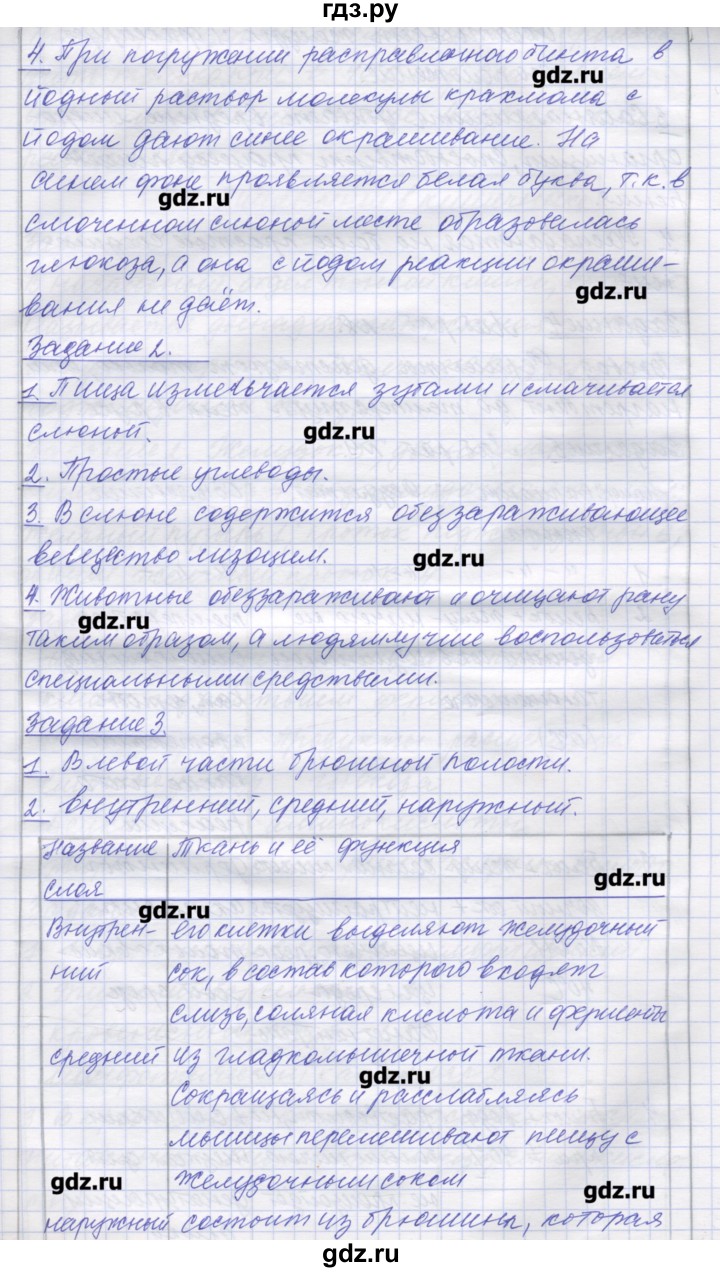 гдз.ру
4. При погружении расправленного бинта в
йодный раствор молекулы крахмала с
йодом дают синее окрашивание. На
синем фоне проявляется белая буква, т.к. в
смоченном слюной месте образовалась
глюкоза, а она с йодом реакции окраши-
вания не даёт.
Задание 2.
1. Пища измельчается зубами и смачивается
слюной.
2. Простые углеводы.
3. В слюне содержится обеззараживающее
вевещество лизоцим.
4. Животные обеззараживают и очищают рану
таким образом, а людям лучше воспользоваться
специальными средствами.
Задание 3.
1. В левой части брюшной полости.
2. внутренний, средний, наружный.
Название слоя | Ткань и её функция
Внутрен-ний | его клетки выделяют желудочный
сок, в состав которого входят
слизь, соляная кислота и ферменты
средний | из гладкомышечной ткани.
Сокращаясь и расслабляясь
мышцы перемешивают пищу с
желудочным соком
наружный | состоит из брюшины, которая
gdz.ru
gdz.ru
gdz.ru
gdz.ru
gdz.ru
gdz.ru
gdz.ru
gdz.ru
gdz.ru
gdz.ru
gdz.ru
gdz.ru